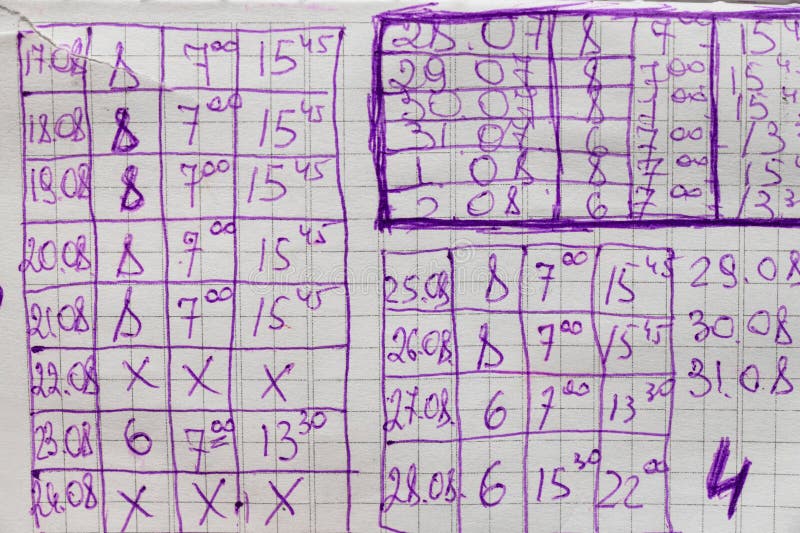 17.08 8 7⁰⁰ 15⁴⁵
18.08 8 7⁰⁰ 15⁴⁵
19.08 8 7⁰⁰ 15⁴⁵
20.08 8 7⁰⁰ 15⁴⁵
21.08 8 7⁰⁰ 15⁴⁵
22.08 x x x
23.08 6 7⁰⁰ 13³⁰
24.08 x x x
28.07 8 7⁰⁰ 15⁴
29.07 8 7⁰⁰ 15⁴
30.07 8 7⁰⁰ 15⁴
31.07 6 7⁰⁰ 13³
1.08 8 7⁰⁰ 15⁴
2.08 6 7⁰⁰ 13³
25.08 8 7⁰⁰ 15⁴⁵
26.08 8 7⁰⁰ 15⁴⁵
27.08 6 7⁰⁰ 13³⁰
28.08 6 15³⁰ 22⁰⁰
29.08
30.08
31.08
4